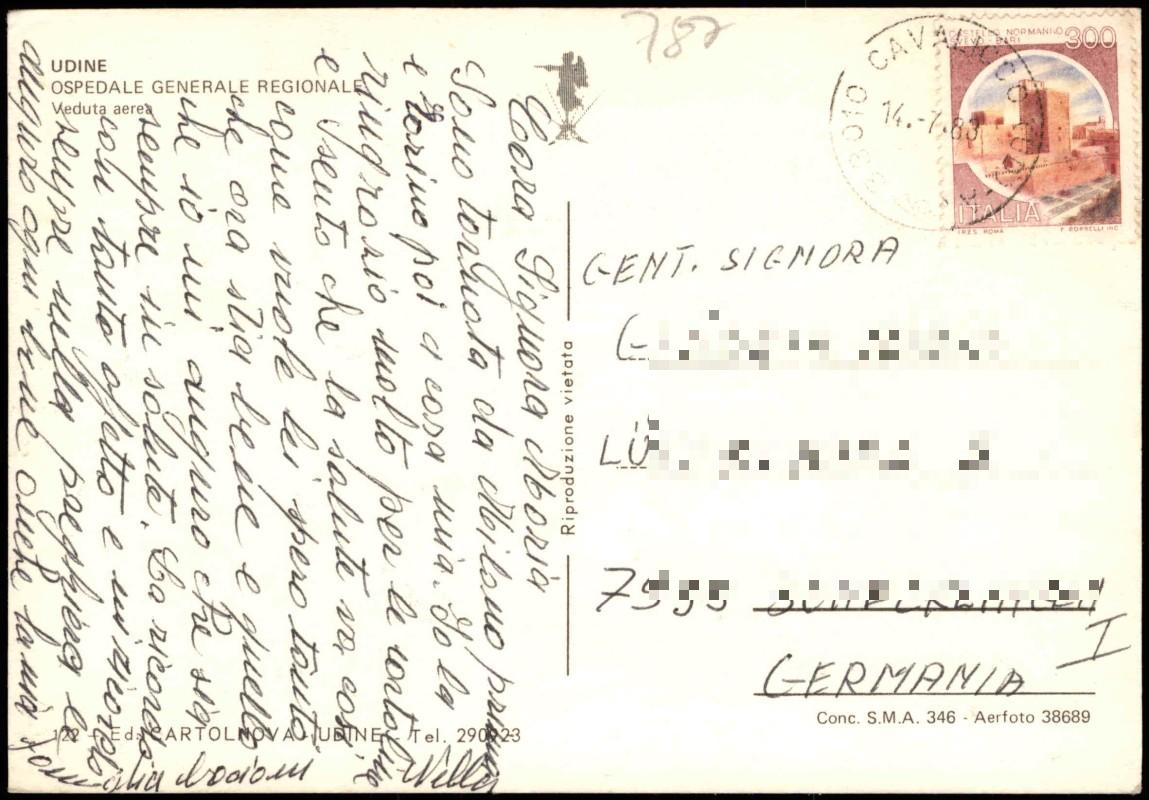 787
UDINE
OSPEDALE GENERALE REGIONALE
Veduta aerea
Cara Signora Maria
Sono tornata da Milano prima
e Torino poi a casa mia. Io la
ringrazio molto per le cartoline
e sento che la salute va così
come vuole lei spero tanto
che ora stia bene e quello
che io mi auguro che sia
sempre in salute. La ricordo
con tanto affetto e un ricordo
sempre nella preghiera le
auguro ogni bene anche la mia
famiglia bacioni Nella
122 - Ed. CARTOLNOVA - UDINE - Tel. 290923
Riproduzione vietata
33010 CAVALICCO
14.-7.83
CASTELLO NORMANNO
SVEVO - BARI
300
ITALIA
I.P.Z.S. ROMA
GENT. SIGNORA
G
LU
GERMANIA
I
Conc. S.M.A. 346 - Aerfoto 38689